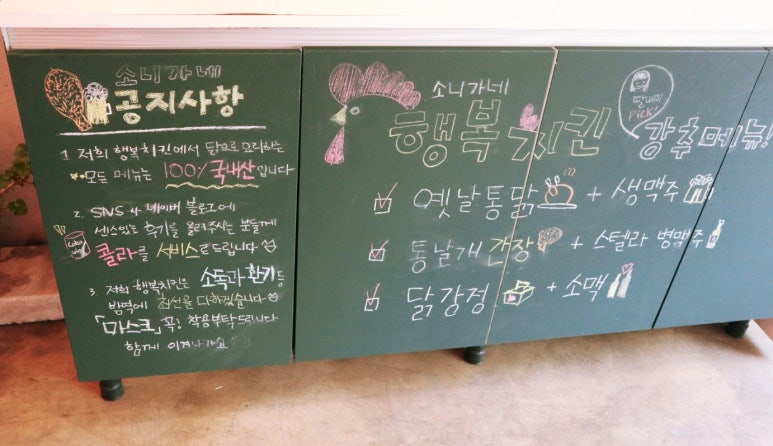 소니가네
공지사항
1 저희 행복치킨에서 닭으로 요리하는
모든 메뉴는 100% 국내산입니다
2. SNS 나 네이버 블로그에
센스있는 후기를 올려주시는 분들께
콜라를 서비스로 드립니다
3. 저희 행복치킨은 소독과 환기등
방역에 최선을 다하겠습니다
「마스크」 꼭! 착용부탁드립니다
함께 이겨나가요
소니가네
행복 치킨
딸내미
Pick!
강추메뉴!
옛날통닭 + 생맥주
통날개 간장 + 스텔라 병맥주
닭강정 + 소맥